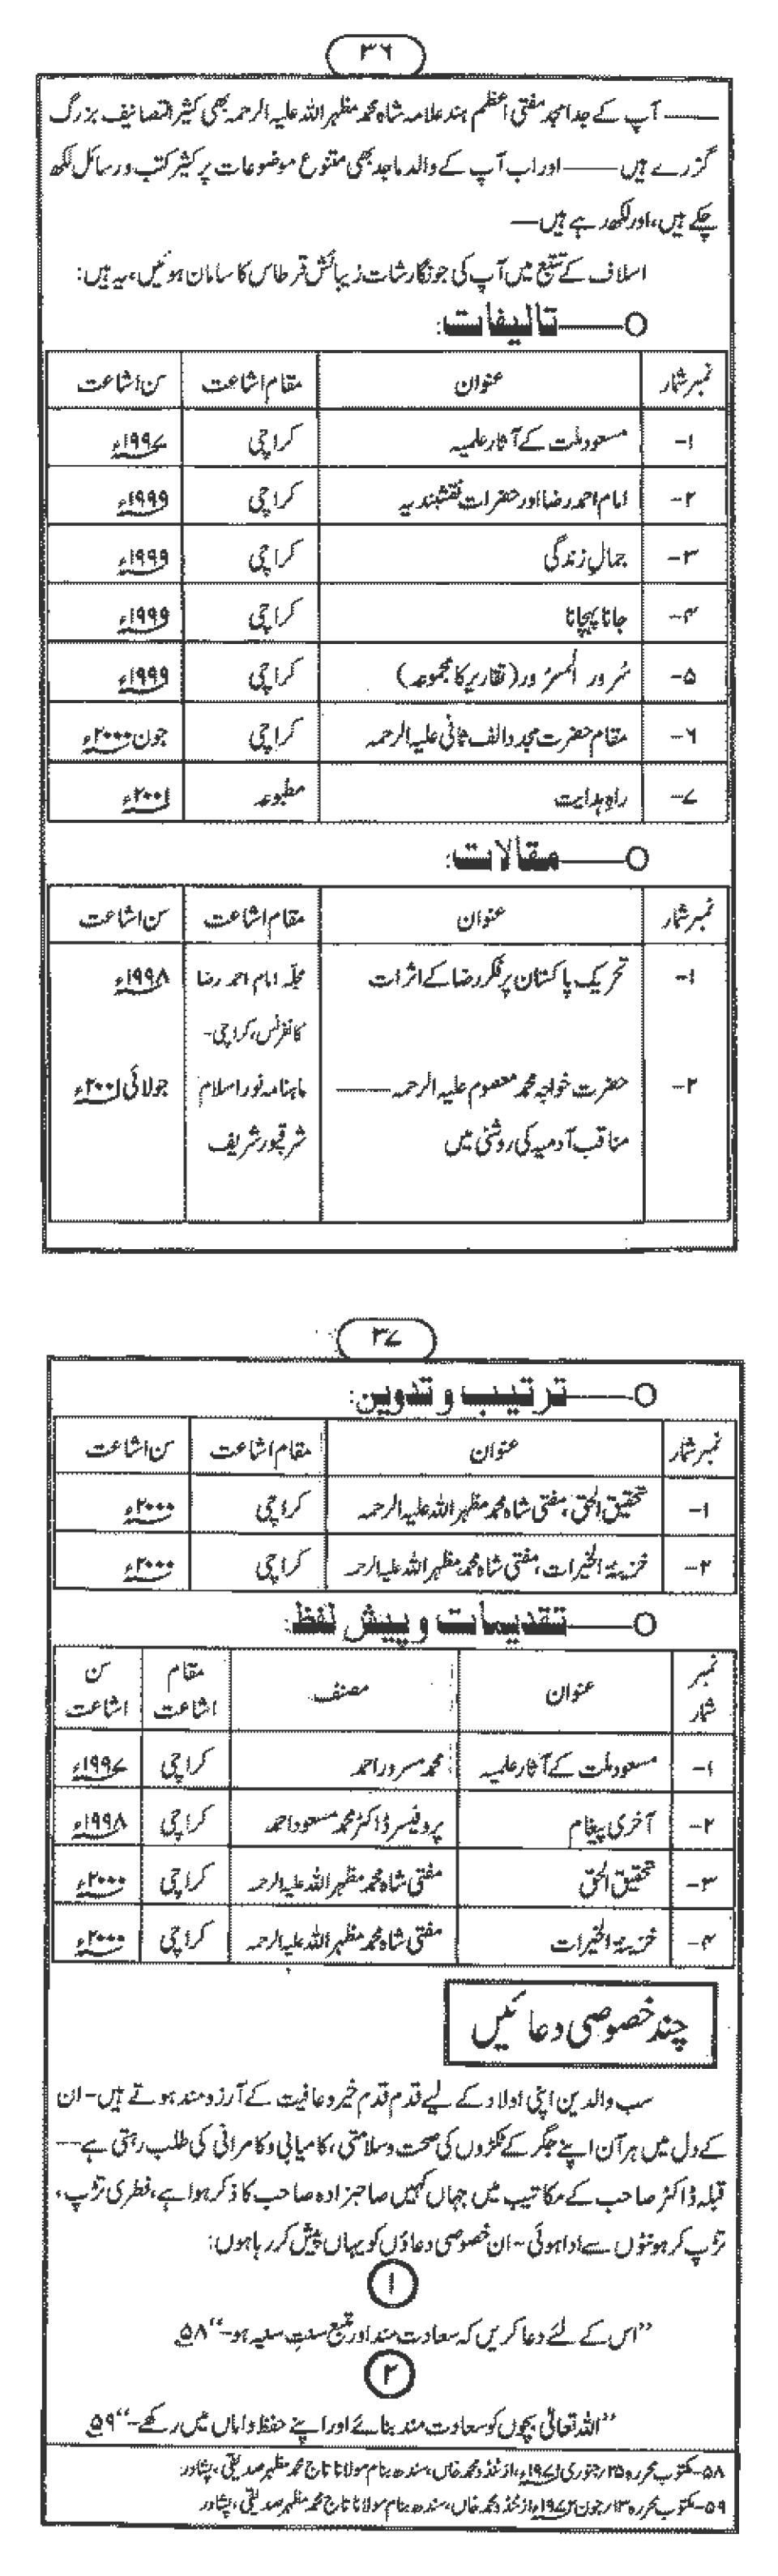 ۳۶
—— آپ کے جدامجد مفتی اعظم ہند علامہ شاہ محمد مظہر اللہ علیہ الرحمہ بھی کثیر التصانیف بزرگ
گزرے ہیں —— اور اب آپ کے والد ماجد بھی متنوع موضوعات پر کثیر کتب و رسائل لکھ
چکے ہیں، اور لکھ رہے ہیں—
اسلاف کے تتبع میں آپ کی جو نگارشات زیبائش قرطاس کا سامان ہوئیں، یہ ہیں:
O—— تالیفات:
نمبر شمار عنوان مقام اشاعت سن اشاعت
۱- مسعود ملت کے آثار علمیہ کراچی ۱۹۹۷ء
۲- امام احمد رضا اور حضرات نقشبندیہ کراچی ۱۹۹۹ء
۳- جمالِ زندگی کراچی ۱۹۹۹ء
۴- جانا پہچانا کراچی ۱۹۹۹ء
۵- سُرور المسرُور (تقاریر کا مجموعہ) کراچی ۱۹۹۹ء
۶- مقام حضرت مجدد الف ثانی علیہ الرحمہ کراچی جون ۲۰۰۰ء
۷- راہِ ہدایت مطبوعہ ۲۰۰۱ء
O—— مقالات:
نمبر شمار عنوان مقام اشاعت سن اشاعت
۱- تحریک پاکستان پر فکر رضا کے اثرات مجلّہ امام احمد رضا ۱۹۹۸ء
کانفرنس، کراچی-
۲- حضرت خواجہ محمد معصوم علیہ الرحمہ —— ماہنامہ نور اسلام جولائی ۲۰۰۱ء
مناقب آدمیہ کی روشنی میں شرقپور شریف
۳۷
O—— ترتیب و تدوین:
نمبر شمار عنوان مقام اشاعت سن اشاعت
۱- تحقیق الحق، مفتی شاہ محمد مظہر اللہ علیہ الرحمہ کراچی ۲۰۰۰ء
۲- خزینۃ الخیرات، مفتی شاہ محمد مظہر اللہ علیہ الرحمہ کراچی ۲۰۰۰ء
O—— تقدیمات و پیش لفظ:
نمبر شمار عنوان مصنف مقام اشاعت سن اشاعت
۱- مسعود ملت کے آثار علمیہ محمد مسرور احمد کراچی ۱۹۹۷ء
۲- آخری پیغام پروفیسر ڈاکٹر محمد مسعود احمد کراچی ۱۹۹۸ء
۳- تحقیق الحق مفتی شاہ محمد مظہر اللہ علیہ الرحمہ کراچی ۲۰۰۰ء
۴- خزینۃ الخیرات مفتی شاہ محمد مظہر اللہ علیہ الرحمہ کراچی ۲۰۰۰ء
چند خصوصی دعائیں
سب والدین اپنی اولاد کے لیے قدم قدم خیر و عافیت کے آرزو مند ہوتے ہیں- ان
کے دل میں ہر آن اپنے جگر کے ٹکڑوں کی صحت و سلامتی، کامیابی و کامرانی کی طلب رہتی ہے—
قبلہ ڈاکٹر صاحب کے مکاتیب میں جہاں کہیں صاحبزادہ صاحب کا ذکر ہوا ہے، فطری تڑپ،
تڑپ کر ہونٹوں سے ادا ہوئی- ان خصوصی دعاؤں کو یہاں پیش کر رہا ہوں:
۱
"اس کے لئے دعا کریں کہ سعادت مند اور متبع سنتِ سنیہ ہو-" ۵۸
۲
"اللہ تعالیٰ بچوں کو سعادت مند بنائے اور اپنے حفظ و اماں میں رکھے-" ۵۹
۵۸-مکتوب محررہ ۲۵/جنوری ۱۹۷۱ء، از ٹنڈو محمد خاں، سندھ بنام مولانا تاج محمد مظہر صدیقی، پشاور
۵۹-مکتوب محررہ ۱۳/جون ۱۹۷۲ء، از ٹنڈو محمد خاں، سندھ بنام مولانا تاج محمد مظہر صدیقی، پشاور